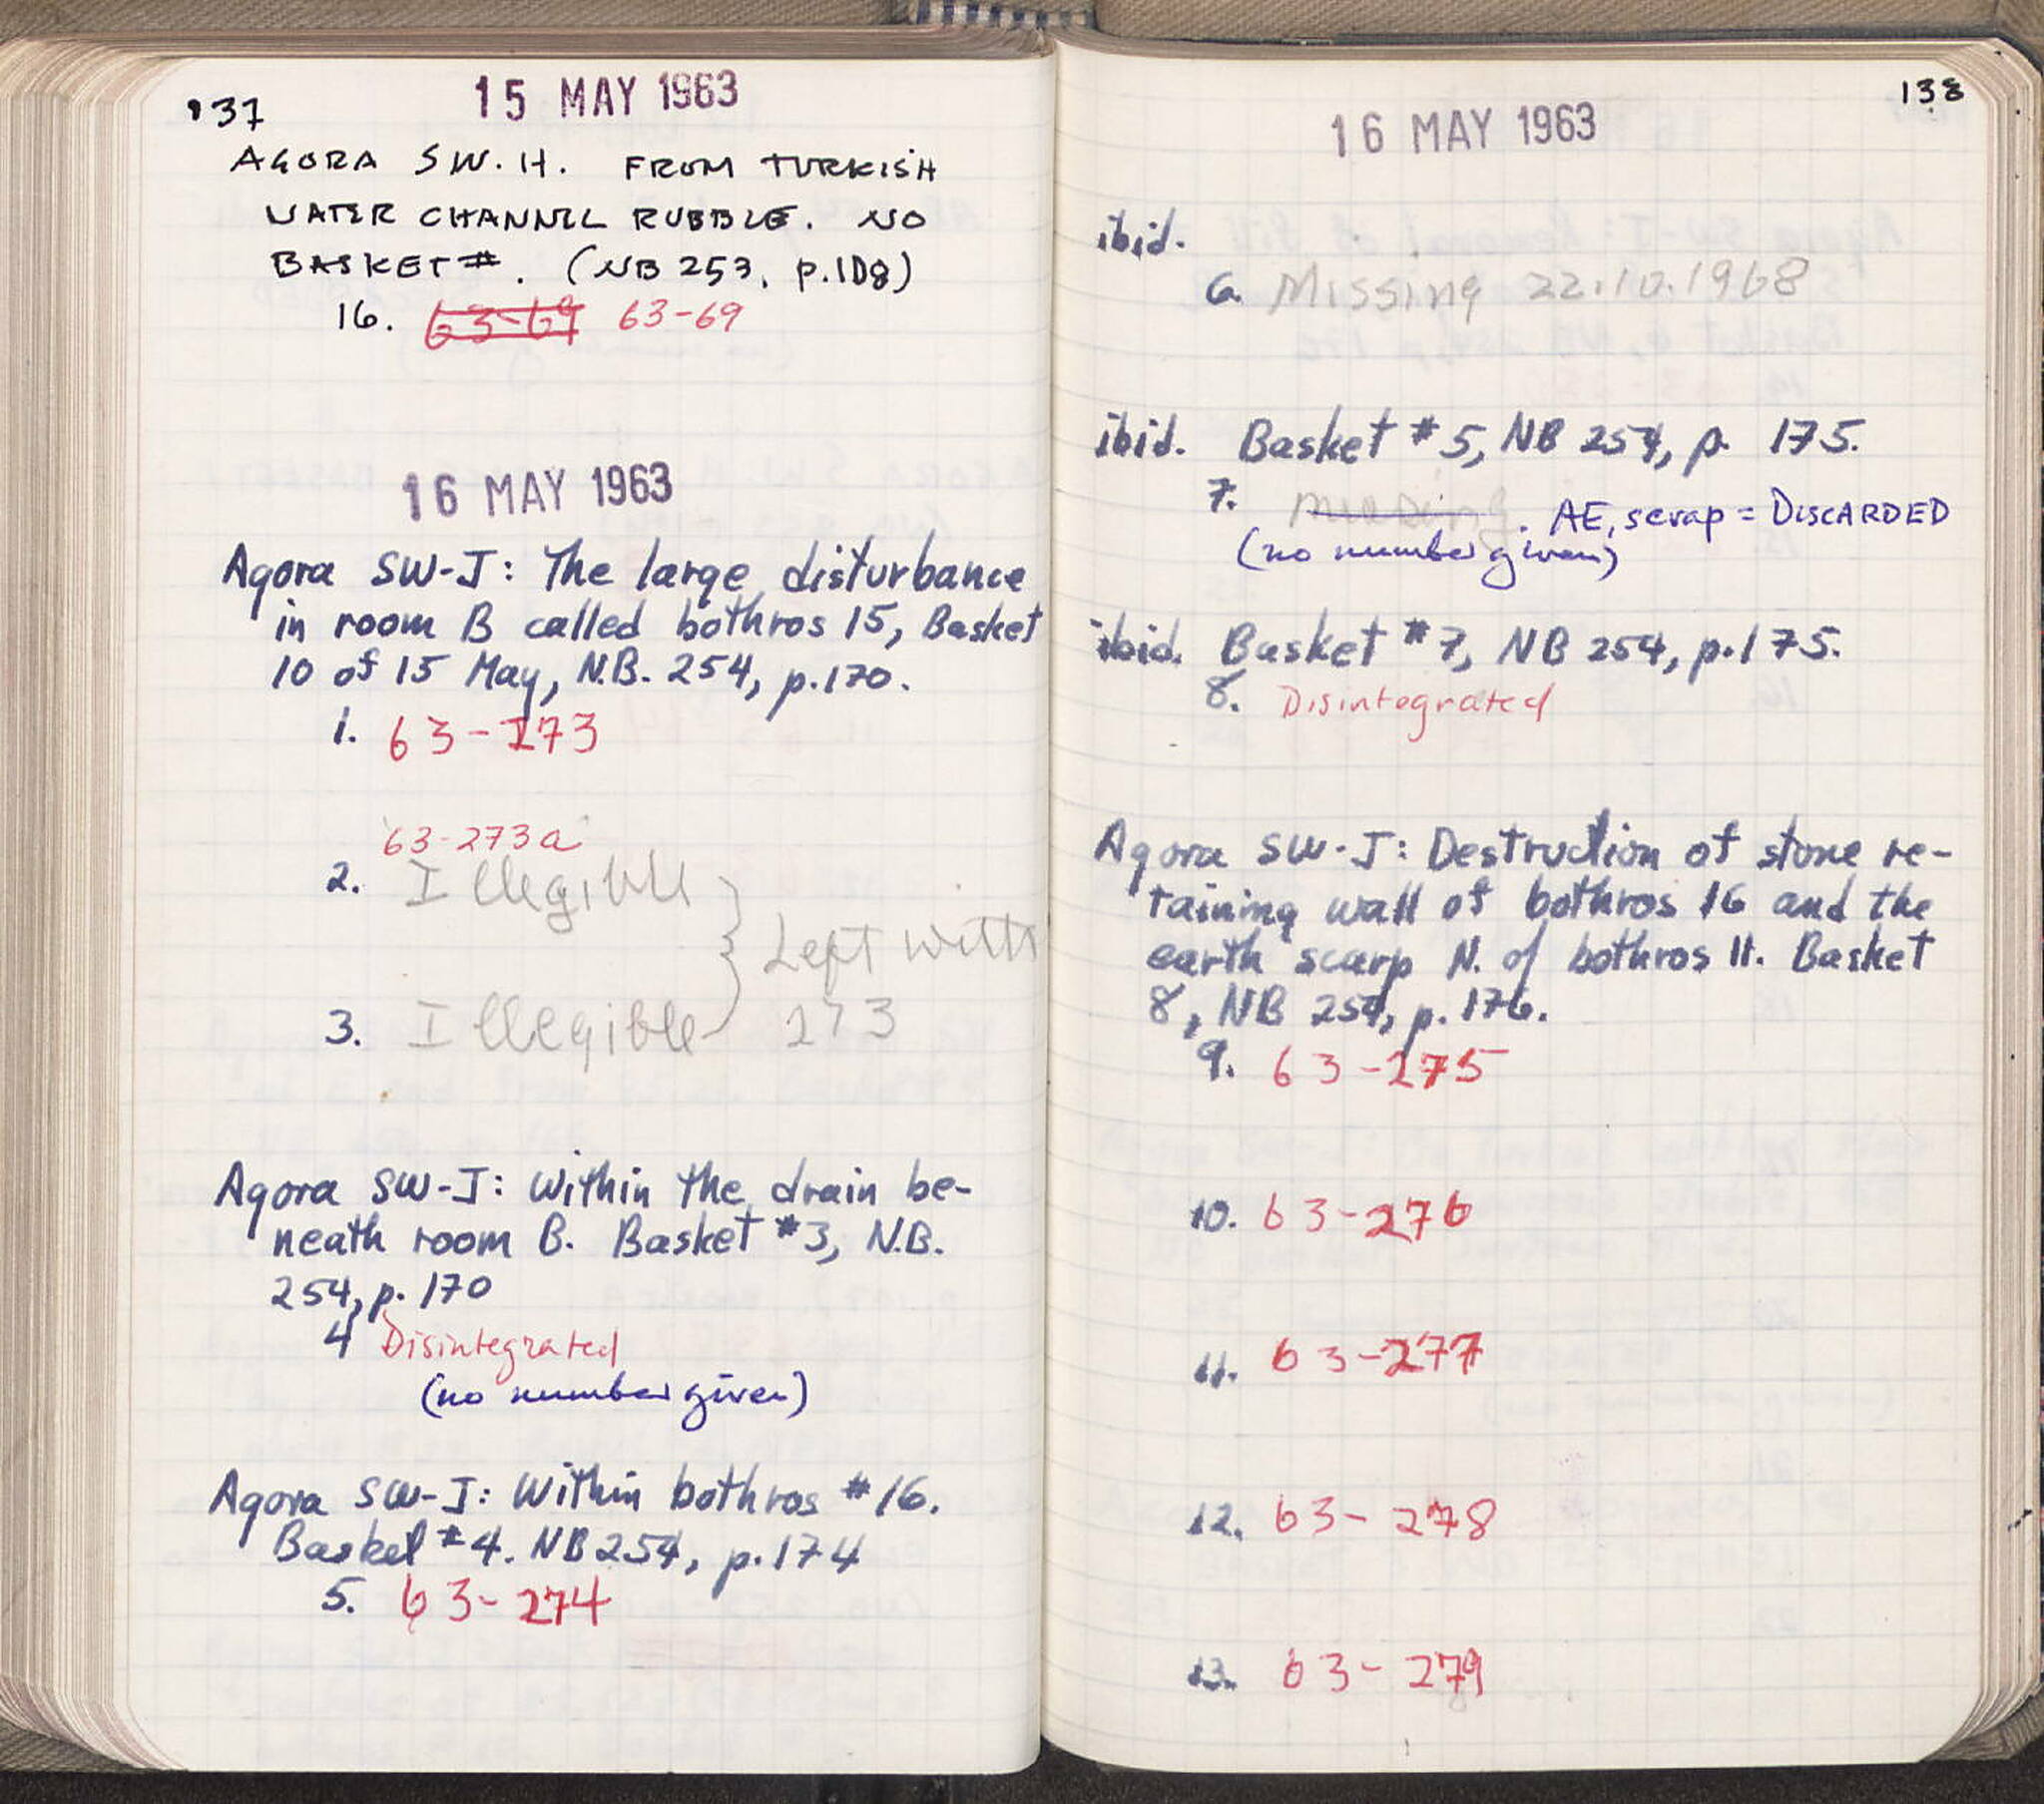 137
15 MAY 1963
AGORA SW. H. FROM TURKISH
WATER CHANNEL RUBBLE. NO
BASKET #. (NB 253, p. 108)
16. 63-69 63-69
16 MAY 1963
Agora SW-J: The large disturbance
in room B called bothros 15, Basket
10 of 15 May, N.B. 254, p. 170.
1. 63-273
63-273a
2. Illegible } Left with
3. Illegible 273
Agora SW-J: Within the drain be-
neath room B. Basket #3, N.B.
254, p. 170
4 Disintegrated
(no number given)
Agora SW-J: Within bothros #16.
Basket #4. NB 254, p. 174
5. 63-274
138
16 MAY 1963
ibid.
6. Missing 22.10.1968
ibid. Basket #5, NB 254, p. 175.
7. missing. AE, scrap = DISCARDED
(no number given)
ibid. Basket #7, NB 254, p. 175.
8. Disintegrated
Agora SW-J: Destruction of stone re-
taining wall of bothros 16 and the
earth scarp N. of bothros 11. Basket
8, NB 254, p. 176.
9. 63-275
10. 63-276
11. 63-277
12. 63-278
13. 63-279